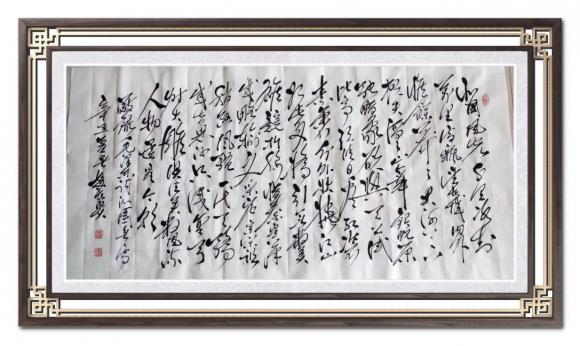 北国风光千里冰封
万里雪飘望长城内外
惟余莽莽大河上下
顿失滔滔山舞银蛇原
驰蜡象欲与天公试
比高须晴日看红装
素裹分外妖娆江山
如此多娇引无数英
雄竞折腰惜秦皇汉
武略输文采唐宗宋祖
稍逊风骚一代天骄
成吉思汗只识弯弓
射大雕俱往矣数风流
人物还看今朝